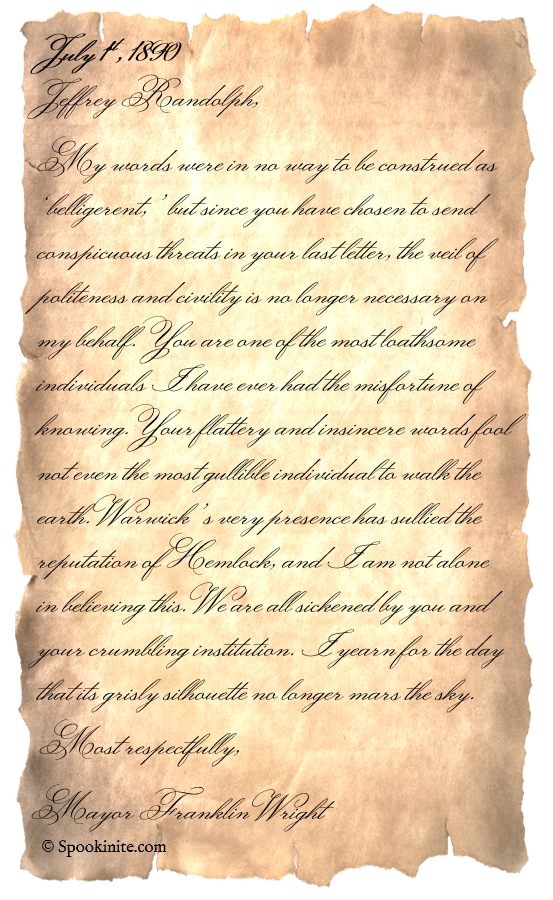 July 1st, 1890
Jeffrey Randolph,
My words were in no way to be construed as
'belligerent,' but since you have chosen to send
conspicuous threats in your last letter, the veil of
politeness and civility is no longer necessary on
my behalf. You are one of the most loathsome
individuals I have ever had the misfortune of
knowing. Your flattery and insincere words fool
not even the most gullible individual to walk the
earth. Warwick's very presence has sullied the
reputation of Hemlock, and I am not alone
in believing this. We are all sickened by you and
your crumbling institution. I yearn for the day
that its grisly silhouette no longer mars the sky.
Most respectfully,
Mayor Franklin Wright
© Spookinite.com